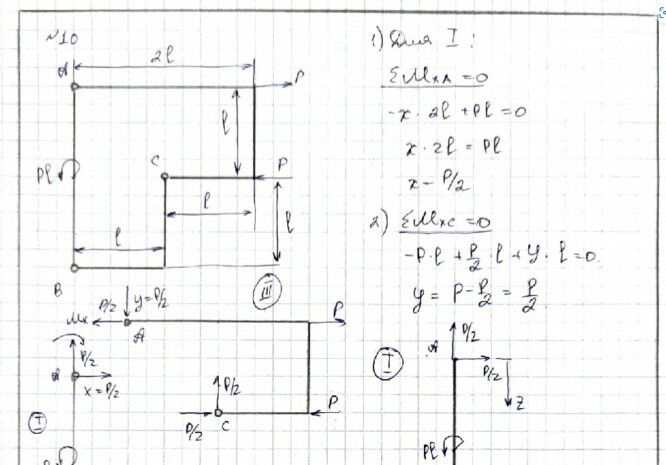 №10
2l
A
P
l
Pl
C
P
l
l
l
B
III
1) Для I:
ΣMxA = 0
-x · 2l + Pl = 0
x · 2l = Pl
x - P/2
2) ΣMxC = 0
-P·l + P/2 · l + y · l = 0.
y = P - P/2 = P/2
P/2
y = P/2
Mx
A
P
P/2
x = P/2
P/2
P/2
C
P
I
I
A
P/2
P/2
z
Pl